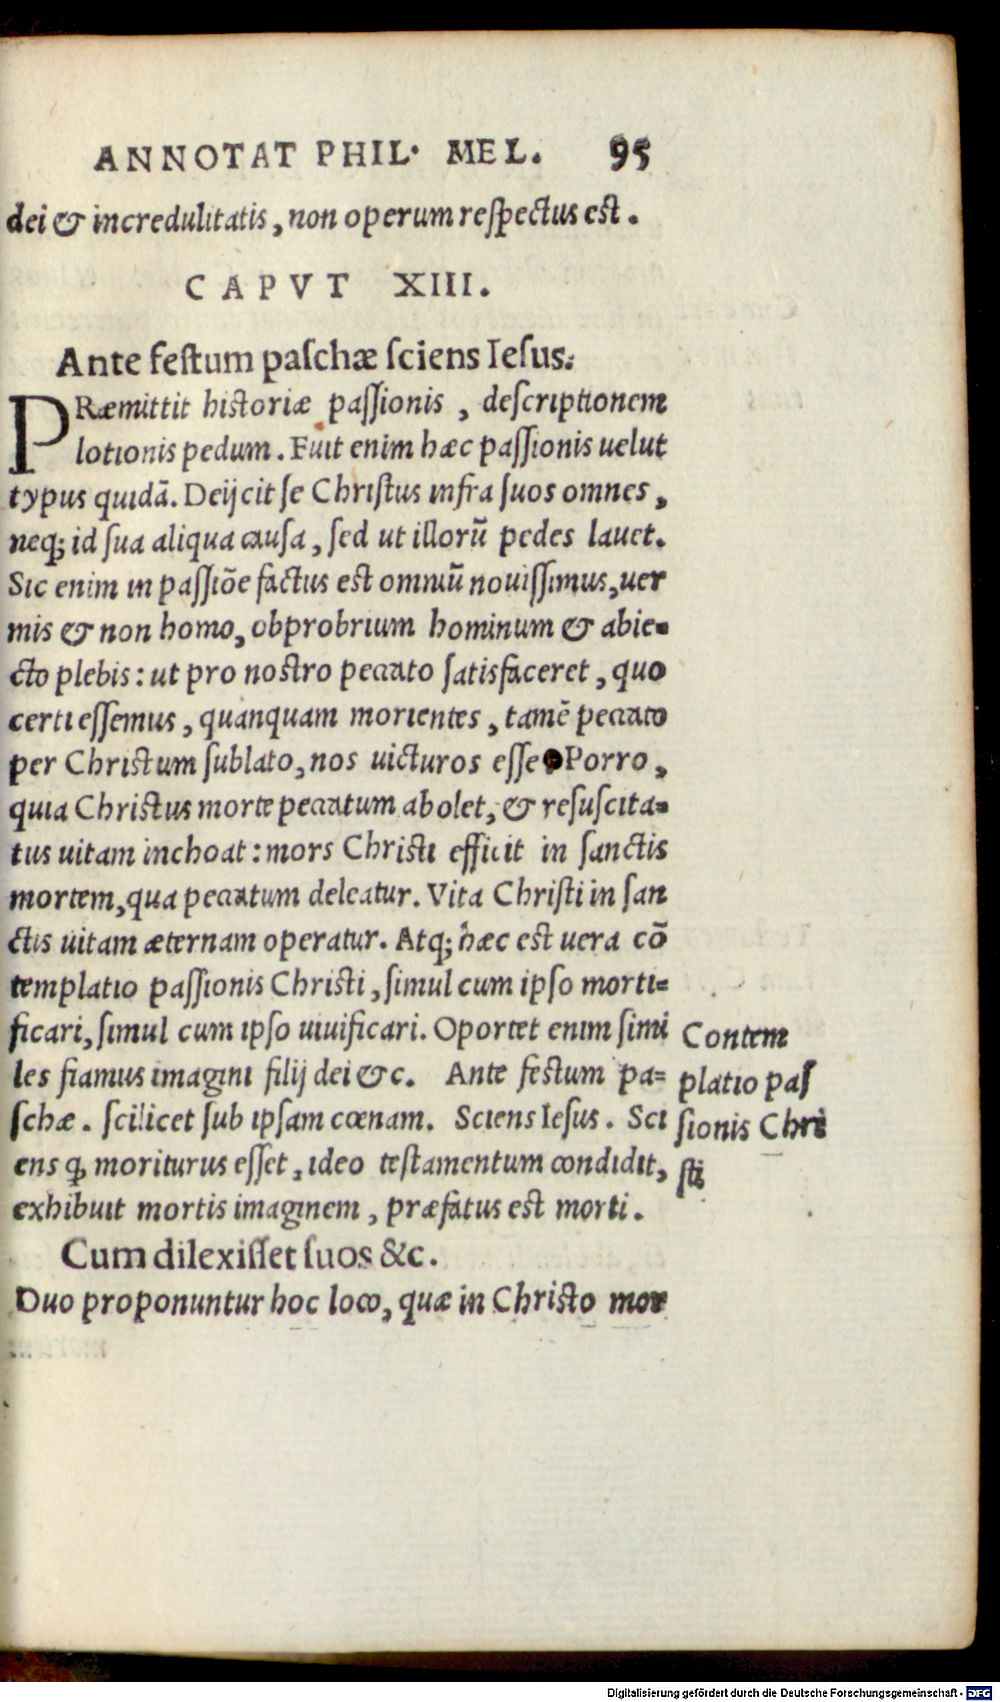 ANNOTAT PHIL· MEL. 95
dei & incredulitatis, non operum reſpectus est.
CAPVT XIII.
Ante feſtum paſchæ ſciens Ieſus.
PRæmittit historiæ paſſionis, deſcriptionem
lotionis pedum. Fuit enim hæc paſſionis uelut
typus quidā. Deijcit ſe Chriſtus infra ſuos omnes,
neq; id ſua aliqua cauſa, ſed ut illorū pedes lauet.
Sic enim in paſſiōe factus est omniū nouiſſimus, uer
mis & non homo, obprobrium hominum & abie-
cto plebis: ut pro nostro peccato ſatisfaceret, quo
certi eſſemus, quanquam morientes, tamē peccato
per Christum ſublato, nos uicturos eſſe. Porro,
quia Christus morte peccatum abolet, & reſuſcita-
tus uitam inchoat: mors Christi efficit in ſanctis
mortem, qua peccatum deleatur. Vita Chriſti in ſan
ctis uitam æternam operatur. Atq; hæc est uera cō
templatio paſſionis Chriſti, ſimul cum ipſo morti-
ficari, ſimul cum ipſo uiuificari. Oportet enim ſimi
les fiamus imagini filij dei &c. Ante feſtum pa-
ſchæ. ſcilicet ſub ipſam cœnam. Sciens Ieſus. Sci
ens ꝙ moriturus eſſet, ideo teſtamentum condidit,
exhibuit mortis imaginem, præfatus est morti.
Cum dilexiſſet ſuos &c.
Duo proponuntur hoc loco, quæ in Christo mor
Contem
platio paſ
ſionis Chri
ſti
Digitalisierung gefördert durch die Deutsche Forschungsgemeinschaft - DFG